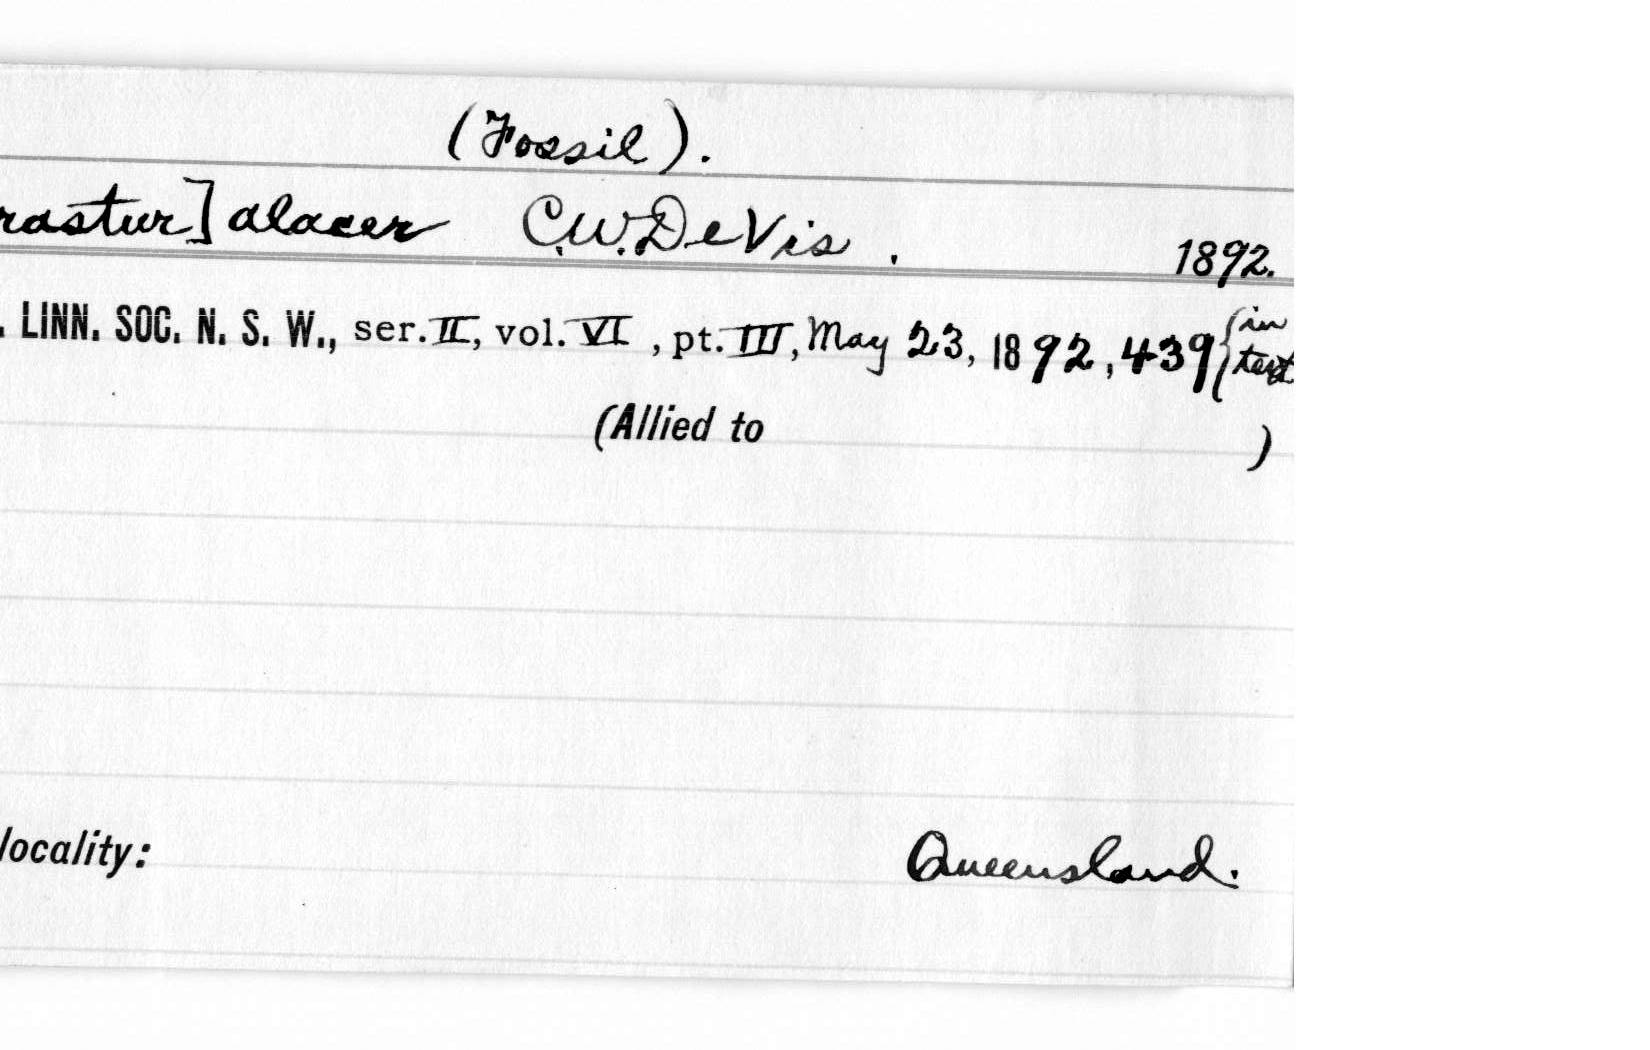 (Fossil).
rastur] alacer C.W. De Vis. 1892.
. LINN. SOC. N. S. W., ser. II, vol. VI, pt. III, May 23, 1892, 439 {in text
(Allied to )
locality: Queensland.